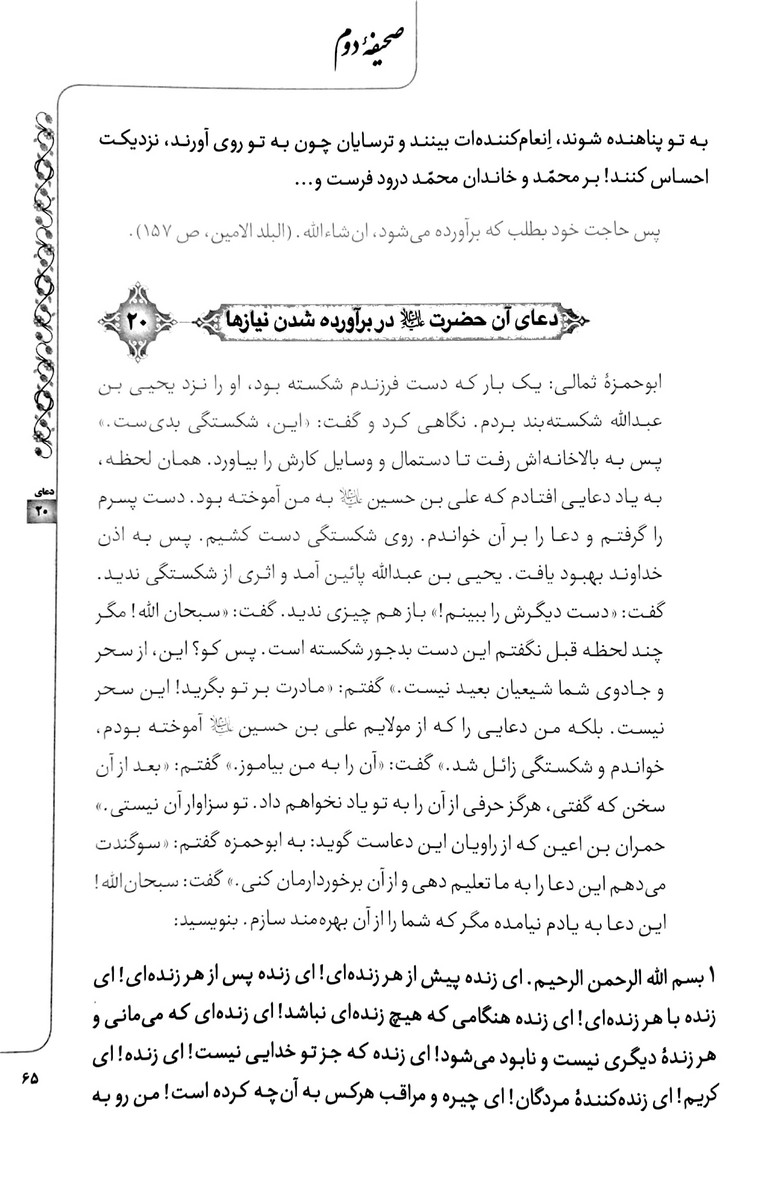 صحیفهٔ دوم
به تو پناهنده شوند، اِنعام‌کننده‌ات بینند و ترسایان چون به تو روی آورند، نزدیکت
احساس کنند! بر محمّد و خاندان محمّد درود فرست و...
پس حاجت خود بطلب که برآورده می‌شود، ان‌شاءالله. (البلد الامین، ص ۱۵۷).
دعای آن حضرت علیه‌السلام در برآورده شدن نیازها
۲۰
ابوحمزهٔ ثمالی: یک بار که دست فرزندم شکسته بود، او را نزد یحیی بن
عبدالله شکسته‌بند بردم. نگاهی کرد و گفت: «این، شکستگی بدی‌ست.»
پس به بالاخانه‌اش رفت تا دستمال و وسایل کارش را بیاورد. همان لحظه،
به یاد دعایی افتادم که علی بن حسین علیه‌السلام به من آموخته بود. دست پسرم
را گرفتم و دعا را بر آن خواندم. روی شکستگی دست کشیم. پس به اذن
خداوند بهبود یافت. یحیی بن عبدالله پائین آمد و اثری از شکستگی ندید.
گفت: «دست دیگرش را ببینم!» باز هم چیزی ندید. گفت: «سبحان الله! مگر
چند لحظه قبل نگفتم این دست بدجور شکسته است. پس کو؟ این، از سحر
و جادوی شما شیعیان بعید نیست.» گفتم: «مادرت بر تو بگرید! این سحر
نیست. بلکه من دعایی را که از مولایم علی بن حسین علیه‌السلام آموخته بودم،
خواندم و شکستگی زائل شد.» گفت: «آن را به من بیاموز.» گفتم: «بعد از آن
سخن که گفتی، هرگز حرفی از آن را به تو یاد نخواهم داد. تو سزاوار آن نیستی.»
حمران بن اعین که از راویان این دعاست گوید: به ابوحمزه گفتم: «سوگندت
می‌دهم این دعا را به ما تعلیم دهی و از آن برخوردارمان کنی.» گفت: سبحان‌الله!
این دعا به یادم نیامده مگر که شما را از آن بهره‌مند سازم. بنویسید:
۱ بسم الله الرحمن الرحیم. ای زنده پیش از هر زنده‌ای! ای زنده پس از هر زنده‌ای! ای
زنده با هر زنده‌ای! ای زنده هنگامی که هیچ زنده‌ای نباشد! ای زنده‌ای که می‌مانی و
هر زندهٔ دیگری نیست و نابود می‌شود! ای زنده که جز تو خدایی نیست! ای زنده! ای
کریم! ای زنده‌کنندهٔ مردگان! ای چیره و مراقب هرکس به آن‌چه کرده است! من رو به
دعای
۲۰
۶۵